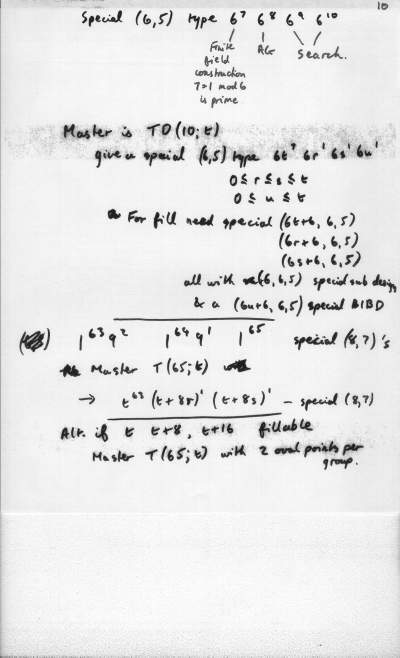 10
Special (6,5) type 6^7 6^8 6^9 6^10
Finite field construction 7≡1 mod 6 is prime
AG
Search.
Master is TD(10; t)
give a special (6,5) type 6t^7 6r^1 6s^1 6u^1
0 ≤ r ≤ s ≤ t
0 ≤ u ≤ t
For fill need special (6t+6, 6, 5)
(6r+6, 6, 5)
(6s+6, 6, 5)
all with (6,6,5) special sub design
& a (6u+6, 6, 5) special BIBD
1^63 9^2 1^64 9^1 1^65 special (8,7)'s
Master T(65; t)
→ t^63 (t+8r)^1 (t+8s)^1 – special (8,7)
Alt. if t t+8, t+16 fillable
Master T(65; t) with 2 oval points per group.